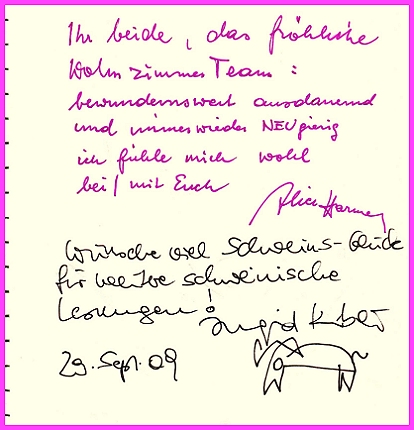 Ihr beide, das fröhliche
Wohnzimmer Team:
bewundernswert ausdauernd
und immer wieder NEUgierig
ich fühle mich wohl
bei / mit Euch
Alice Harmer
Wünsche viel Schweins-Glück
für weitere schweinische
Lesungen!
Ingrid
29. Sept. 09